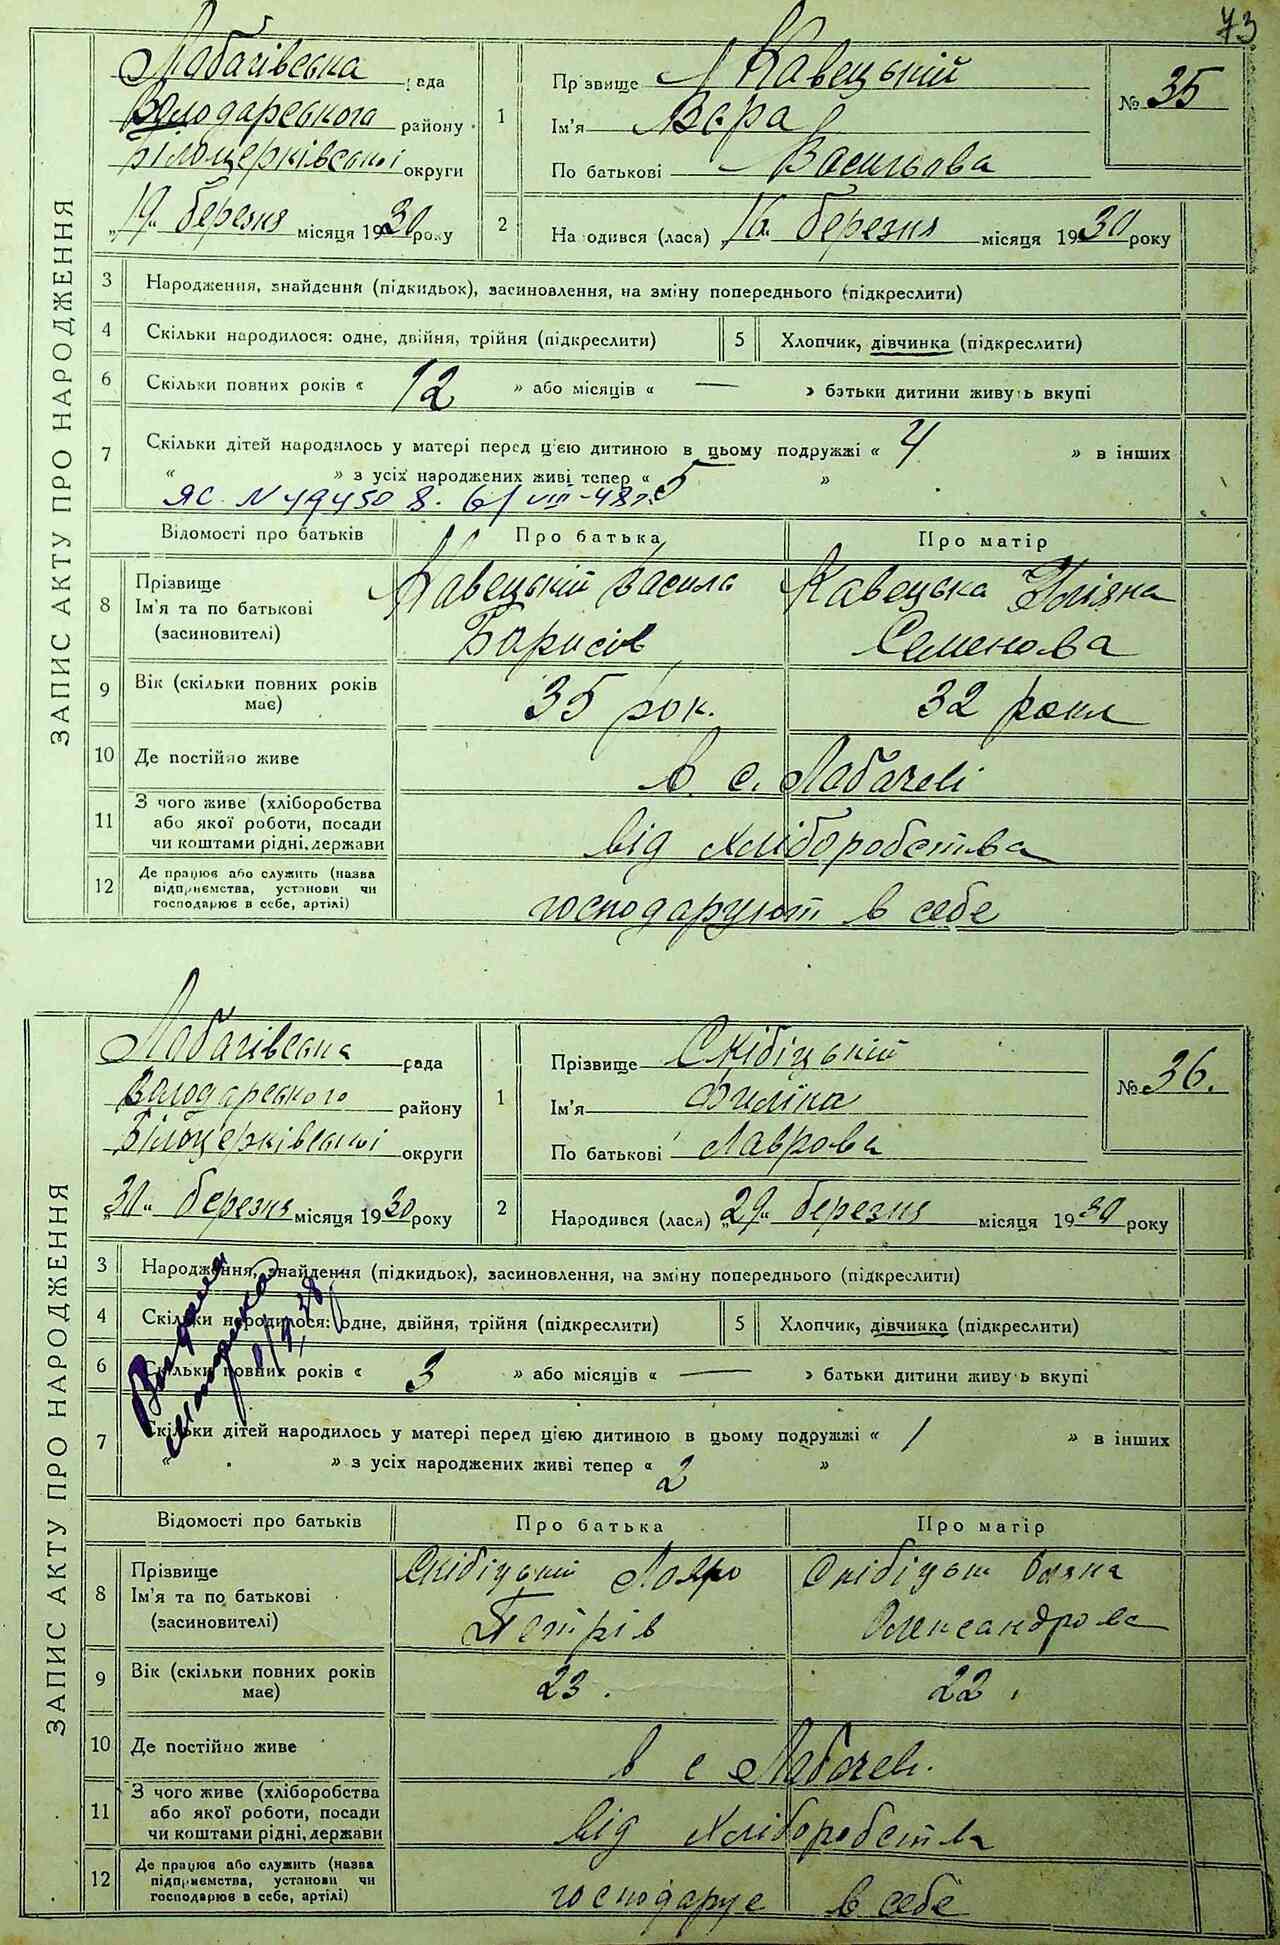 73
ЗАПИС АКТУ ПРО НАРОДЖЕННЯ
Лобачівська рада
Володарського району
Білоцерківської округи
„19“ березня місяця 1930 року
1
Прізвище Кавецькій
Ім'я Вєра
По батькові Васильова
№ 35
2
Народився (лася) 16 березня місяця 1930 року
3 Народження, знайдення (підкидьок), засиновлення, на зміну попереднього (підкреслити)
4 Скільки народилося: одне, двійня, трійня (підкреслити)
5 Хлопчик, дівчинка (підкреслити)
6 Скільки повних років « 12 » або місяців « — » батьки дитини живуть вкупі
7 Скільки дітей народилось у матері перед цією дитиною в цьому подружжі « 4 » в інших
« » з усіх народжених живі тепер « 5 »
ЯС N 494508. 6/VIII-48 р.
Відомості про батьків Про батька Про матір
8 Прізвище
Ім'я та по батькові
(засиновителі)
Кавецькій Василь
Борисів
Кавецька Уляна
Семенова
9 Вік (скільки повних років
має)
35 рок. 32 роки
10 Де постійно живе в с. Лобачеві
11 З чого живе (хліборобства
або якої роботи, посади
чи коштами рідні, держави
від хліборобства
12 Де працює або служить (назва
підприємства, установи чи
господарює в себе, артілі)
господарують в себе
ЗАПИС АКТУ ПРО НАРОДЖЕННЯ
Лобачівська рада
Володарського району
Білоцерківської округи
„30“ березня місяця 1930 року
1
Прізвище Скібіцькій
Ім'я
По батькові Лаврова
№ 36.
2
Народився (лася) „29“ березня місяця 1930 року
3 Народження, знайдення (підкидьок), засиновлення, на зміну попереднього (підкреслити)
4 Скільки народилося: одне, двійня, трійня (підкреслити)
5 Хлопчик, дівчинка (підкреслити)
6 Скільки повних років « 3 » або місяців « — » батьки дитини живуть вкупі
7 Скільки дітей народилось у матері перед цією дитиною в цьому подружжі « 1 » в інших
« » з усіх народжених живі тепер « 2 »
Відомості про батьків Про батька Про матір
8 Прізвище
Ім'я та по батькові
(засиновителі)
Скібіцькій Лавро
Петрів
Олександрова
9 Вік (скільки повних років
має)
23. 22.
10 Де постійно живе в с Лобачеві.
11 З чого живе (хліборобства
або якої роботи, посади
чи коштами рідні, держави
від хліборобства
12 Де працює або служить (назва
підприємства, установи чи
господарює в себе, артілі)
господарує в себе